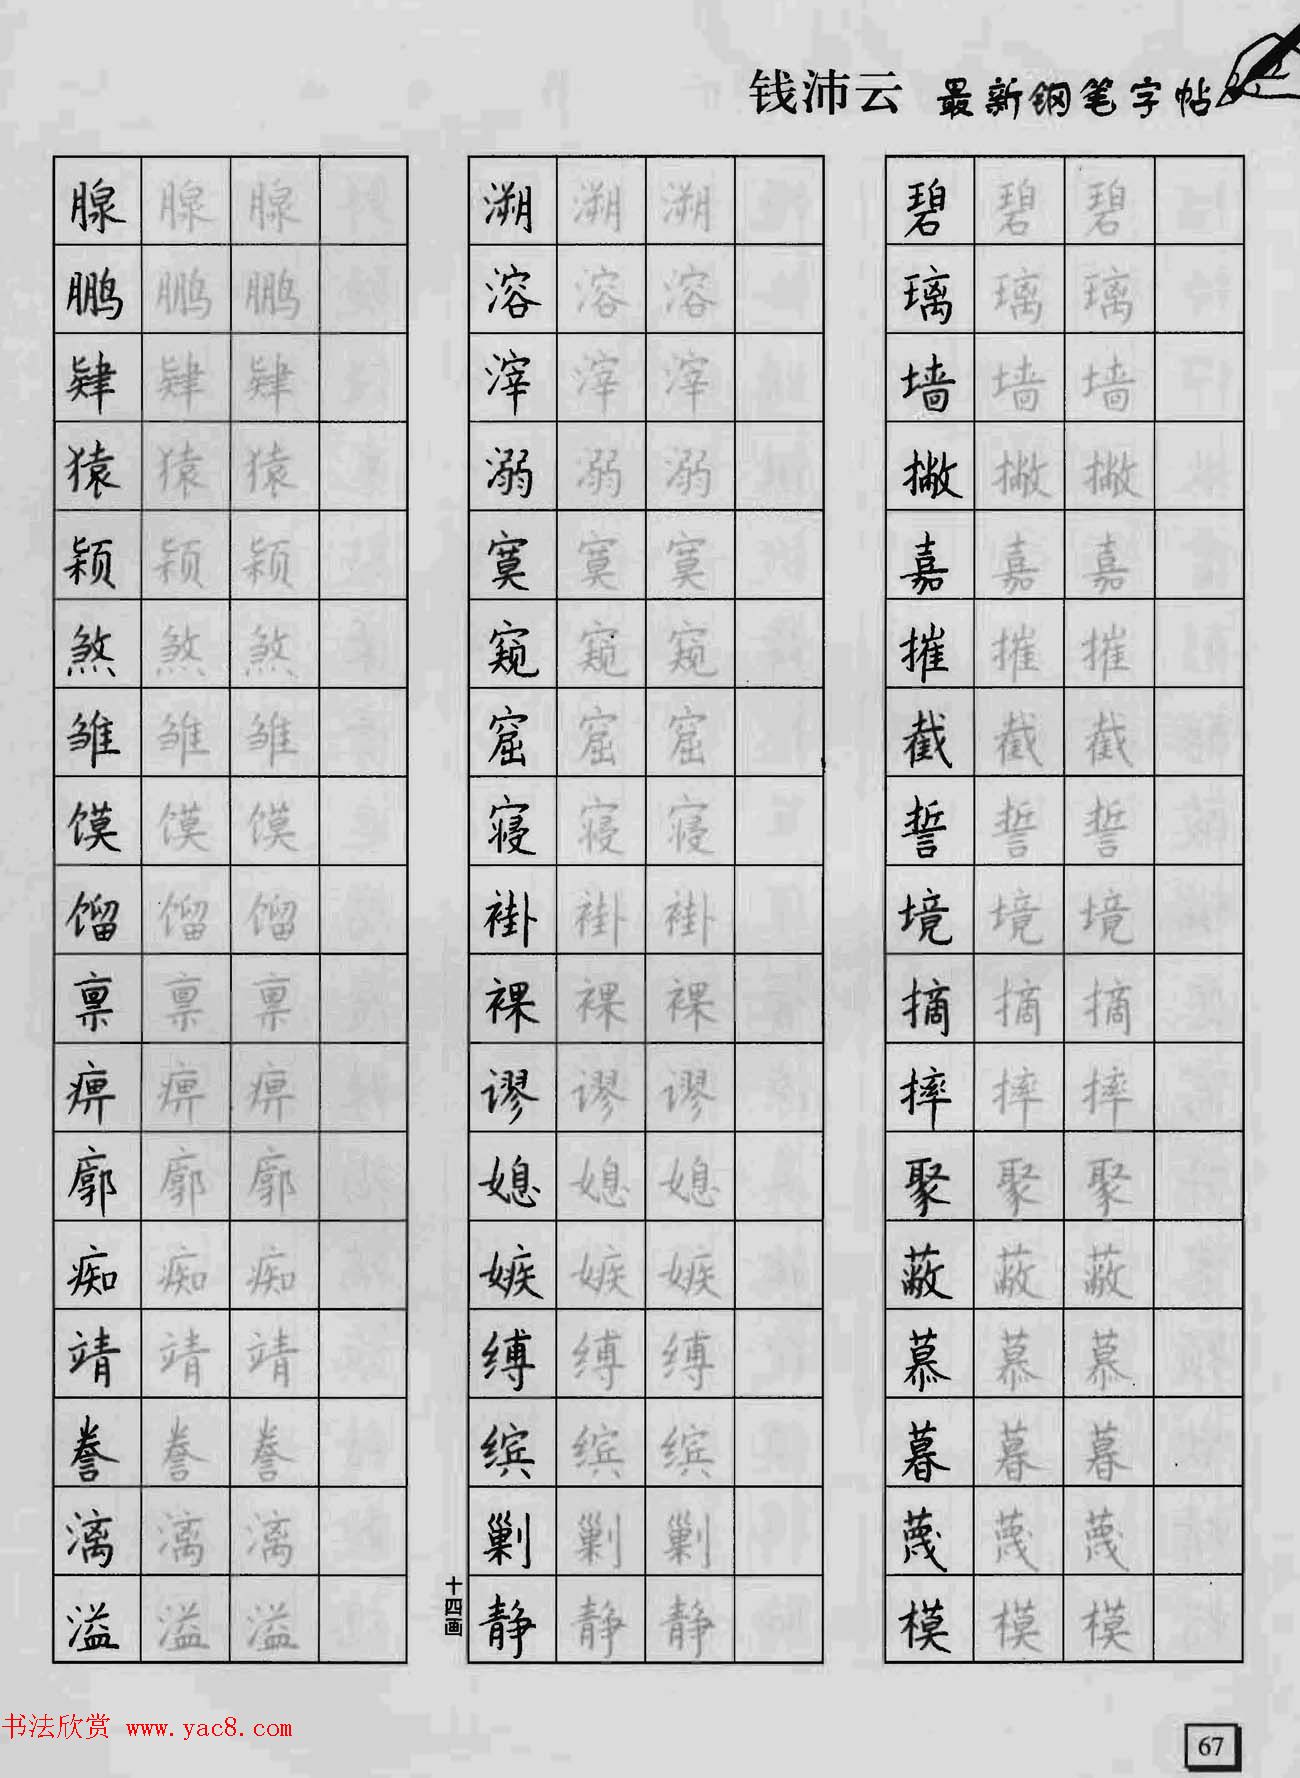 钱沛云 最新钢笔字帖
腺 腺 腺
鹏 鹏 鹏
肄 肄 肄
猿 猿 猿
颖 颖 颖
煞 煞 煞
雏 雏 雏
馍 馍 馍
馏 馏 馏
禀 禀 禀
痹 痹 痹
廓 廓 廓
痴 痴 痴
靖 靖 靖
誊 誊 誊
漓 漓 漓
溢 溢 溢
溯 溯 溯
溶 溶 溶
滓 滓 滓
溺 溺 溺
寞 寞 寞
窥 窥 窥
窟 窟 窟
寝 寝 寝
褂 褂 褂
裸 裸 裸
谬 谬 谬
媳 媳 媳
嫉 嫉 嫉
缚 缚 缚
缤 缤 缤
剿 剿 剿
十四画
静 静 静
碧 碧 碧
璃 璃 璃
墙 墙 墙
撇 撇 撇
嘉 嘉 嘉
摧 摧 摧
截 截 截
誓 誓 誓
境 境 境
摘 摘 摘
摔 摔 摔
聚 聚 聚
蔽 蔽 蔽
慕 慕 慕
暮 暮 暮
蔑 蔑 蔑
模 模 模
书法欣赏 www.yac8.com
67